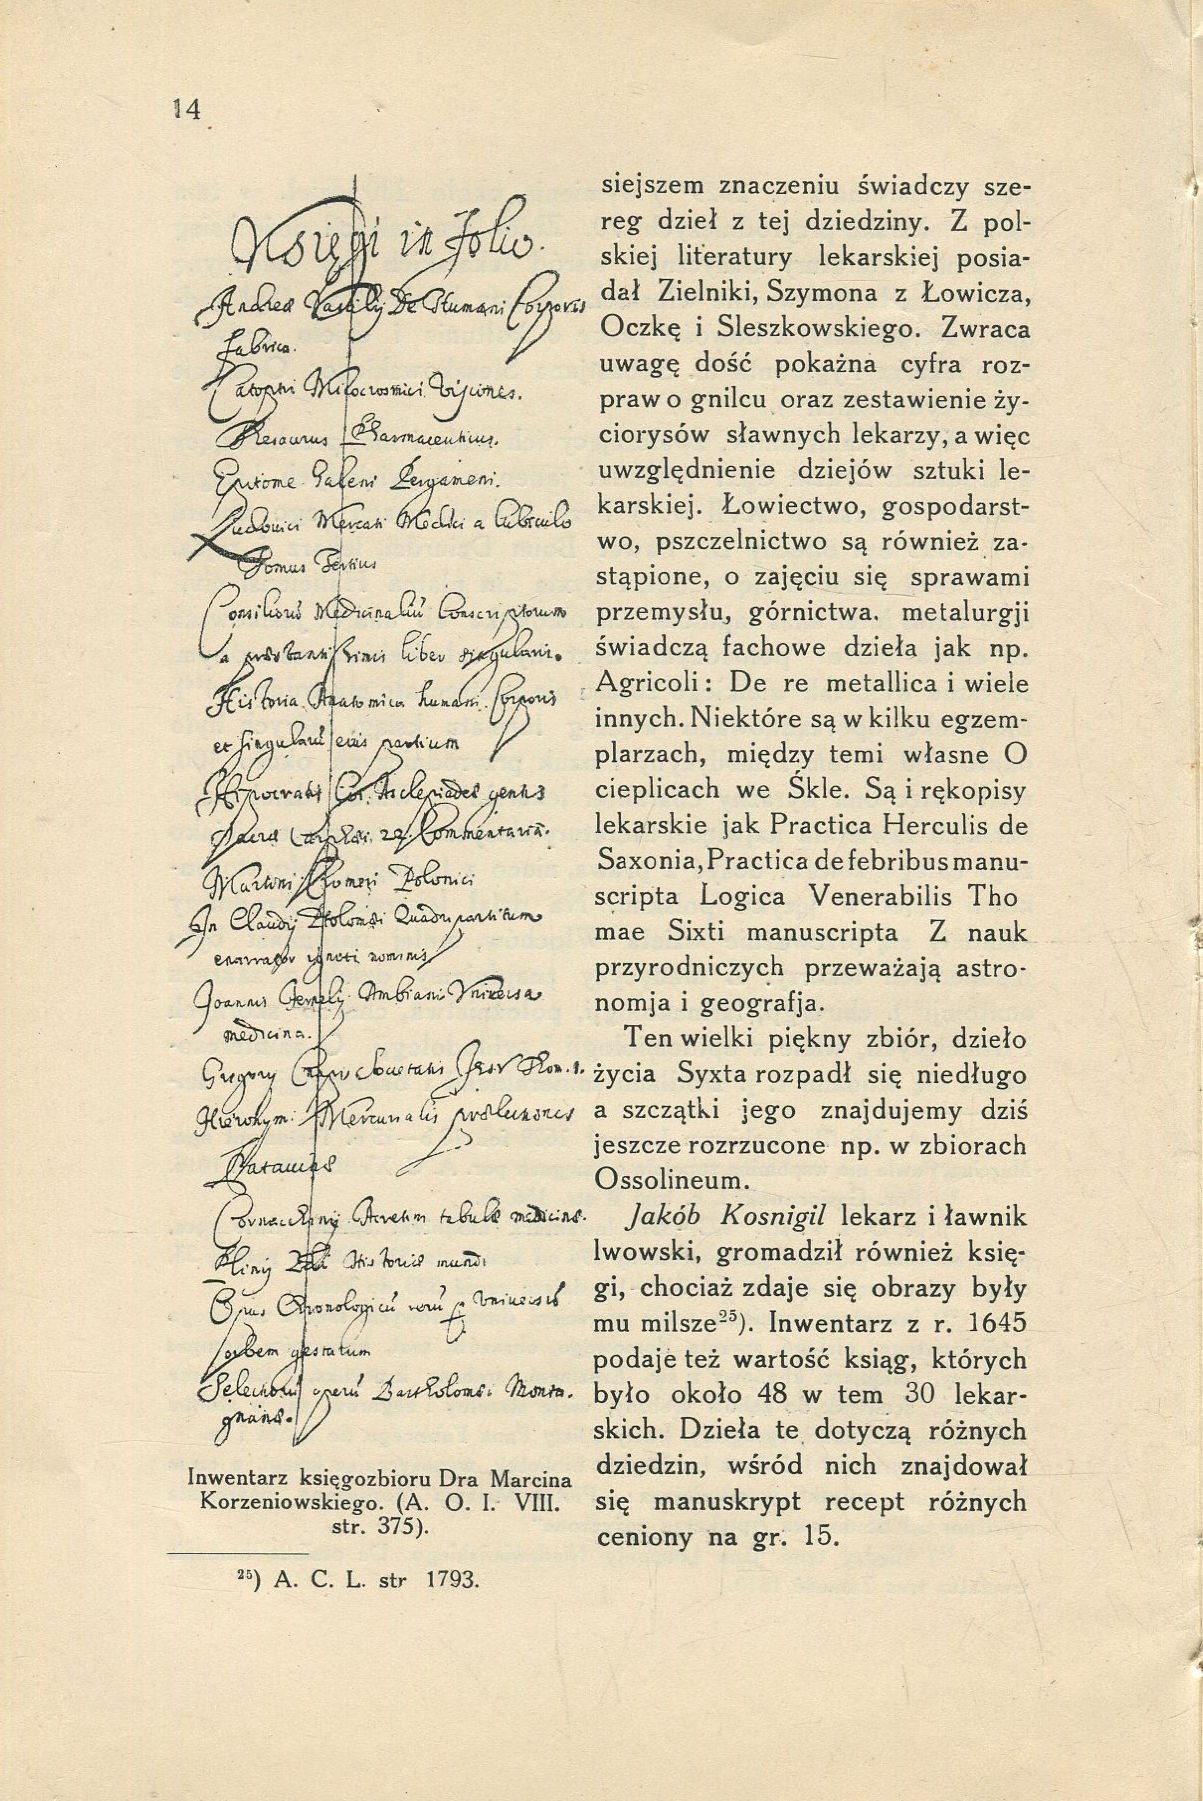 14
Księgi in Folio.
Andreæ Vasalij De Humani Corporis
Fabrica.
Catoptri Microcosmici Visiones.
Thesaurus Pharmaceuticus.
Epitome Galeni Pergameni.
Ludovici Mercati Medici a Cubiculo
Tomus Tertius
Consiliorũ Medicinaliũ Conscriptorum
a præstantissimis liber singularis.
Historia Anatomica humani Corporis
et singularũ eius partium
Hipocratis Coi. Asclepiadeæ gentis
Sacræ 22. Commentaria.
Martini Polonici
In Claudij Ptolomæi Quadripartitum
enarrator ignoti nominis
Joannis Fernelij Ambiani Universa
medicina.
Gregorij Societatis Jesv
Hieronym. Mercurialis prælectiones
Patavinæ
tabulæ medicinæ.
Plinij Historiæ mundi
Opus Chronologicũ Universũ
orbem gestarum
Selectiorũ operũ Bartholomæi Monta-
gnanæ.
Inwentarz księgozbioru Dra Marcina
Korzeniowskiego. (A. O. I. VIII.
str. 375).
siejszem znaczeniu świadczy sze-
reg dzieł z tej dziedziny. Z pol-
skiej literatury lekarskiej posia-
dał Zielniki, Szymona z Łowicza,
Oczkę i Sleszkowskiego. Zwraca
uwagę dość pokaźna cyfra roz-
praw o gnilcu oraz zestawienie ży-
ciorysów sławnych lekarzy, a więc
uwzględnienie dziejów sztuki le-
karskiej. Łowiectwo, gospodarst-
wo, pszczelnictwo są również za-
stąpione, o zajęciu się sprawami
przemysłu, górnictwa. metalurgji
świadczą fachowe dzieła jak np.
Agricoli: De re metallica i wiele
innych. Niektóre są w kilku egzem-
plarzach, między temi własne O
cieplicach we Śkle. Są i rękopisy
lekarskie jak Practica Herculis de
Saxonia, Practica de febribus manu-
scripta Logica Venerabilis Tho
mae Sixti manuscripta Z nauk
przyrodniczych przeważają astro-
nomja i geografja.
Ten wielki piękny zbiór, dzieło
życia Syxta rozpadł się niedługo
a szczątki jego znajdujemy dziś
jeszcze rozrzucone np. w zbiorach
Ossolineum.
Jakób Kosnigil lekarz i ławnik
lwowski, gromadził również księ-
gi, chociaż zdaje się obrazy były
mu milsze²⁵). Inwentarz z r. 1645
podaje też wartość ksiąg, których
było około 48 w tem 30 lekar-
skich. Dzieła te dotyczą różnych
dziedzin, wśród nich znajdował
się manuskrypt recept różnych
ceniony na gr. 15.
²⁵) A. C. L. str 1793.